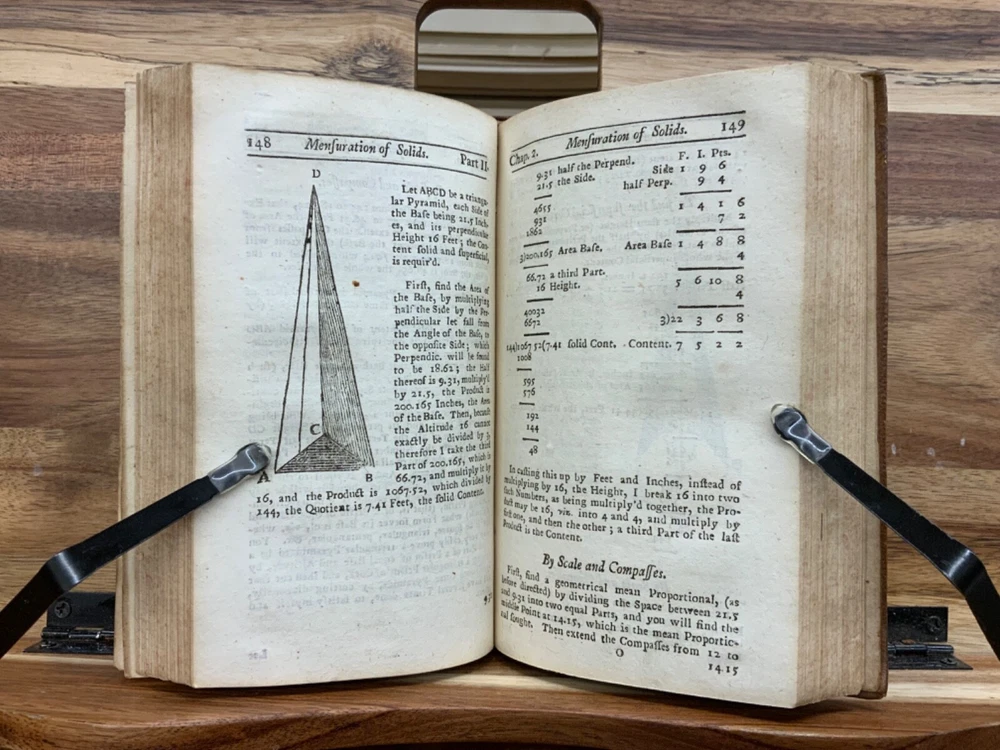 148 Menſuration of Solids. Part II.
D
Let ABCD be a triangu-
lar Pyramid, each Side of
the Baſe being 21.5 Inch-
es, and its perpendicular
Height 16 Feet; the Con-
tent ſolid and ſuperficial,
is requir'd.
Firſt, find the Area of
the Baſe, by multiplying
half the Side by the Per-
pendicular let fall from
the Angle of the Baſe, to
the oppoſite Side; which
Perpendic. will be found
to be 18.62; the Half
thereof is 9.31, multiply'd
by 21.5, the Product is
200.165 Inches, the Area
of the Baſe. Then, becauſe
the Altitude 16 cannot
exactly be divided by 3,
therefore I take the third
Part of 200.165, which is
66.72, and multiply it by
C
A B
16, and the Product is 1067.52, which divided by
144, the Quotient is 7.41 Feet, the ſolid Content.
Chap. 2. Menſuration of Solids. 149
F. I. Pts.
9.31 half the Perpend. Side 1 9 6
21.5 the Side. half Perp. 9 4
4655 1 4 1 6
931 7 2
1862
3)200.165 Area Baſe. Area Baſe 1 4 8 8
4
66.72 a third Part.
16 Height. 5 6 10 8
4
40032
6672 3)22 3 6 8
144)1067 52(7.41 ſolid Cont. Content. 7 5 2 2
1008
595
576
192
144
48
In caſting this up by Feet and Inches, inſtead of
multiplying by 16, the Height, I break 16 into two
ſuch Numbers, as being multiply'd together, the Pro-
duct may be 16, viz. into 4 and 4, and multiply by
firſt one, and then the other; a third Part of the laſt
Product is the Content.
By Scale and Compaſſes.
Firſt, find a geometrical mean Proportional, (as
before directed) by dividing the Space between 21.5
and 9.31 into two equal Parts, and you will find the
middle Point at 14.15, which is the mean Proportio-
nal ſought. Then extend the Compaſſes from 12 to
O 14.15